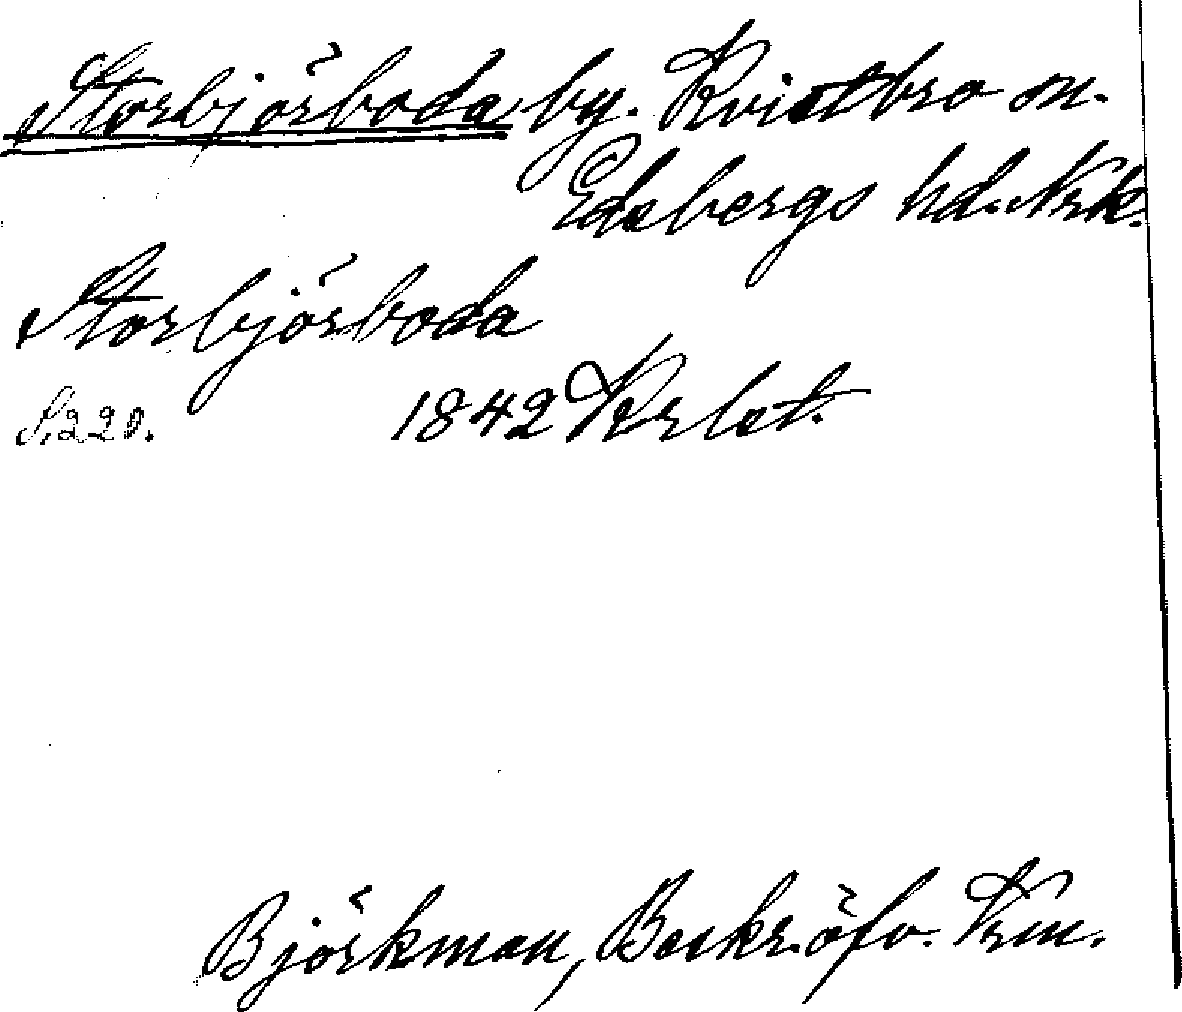 Storbjörboda by. Kvistbro sn.
Edsbergs hd. Nrk.
Storbjörboda
S. 220. 1842 Krlet.
Björkman, Beskr. öfv. Krm.